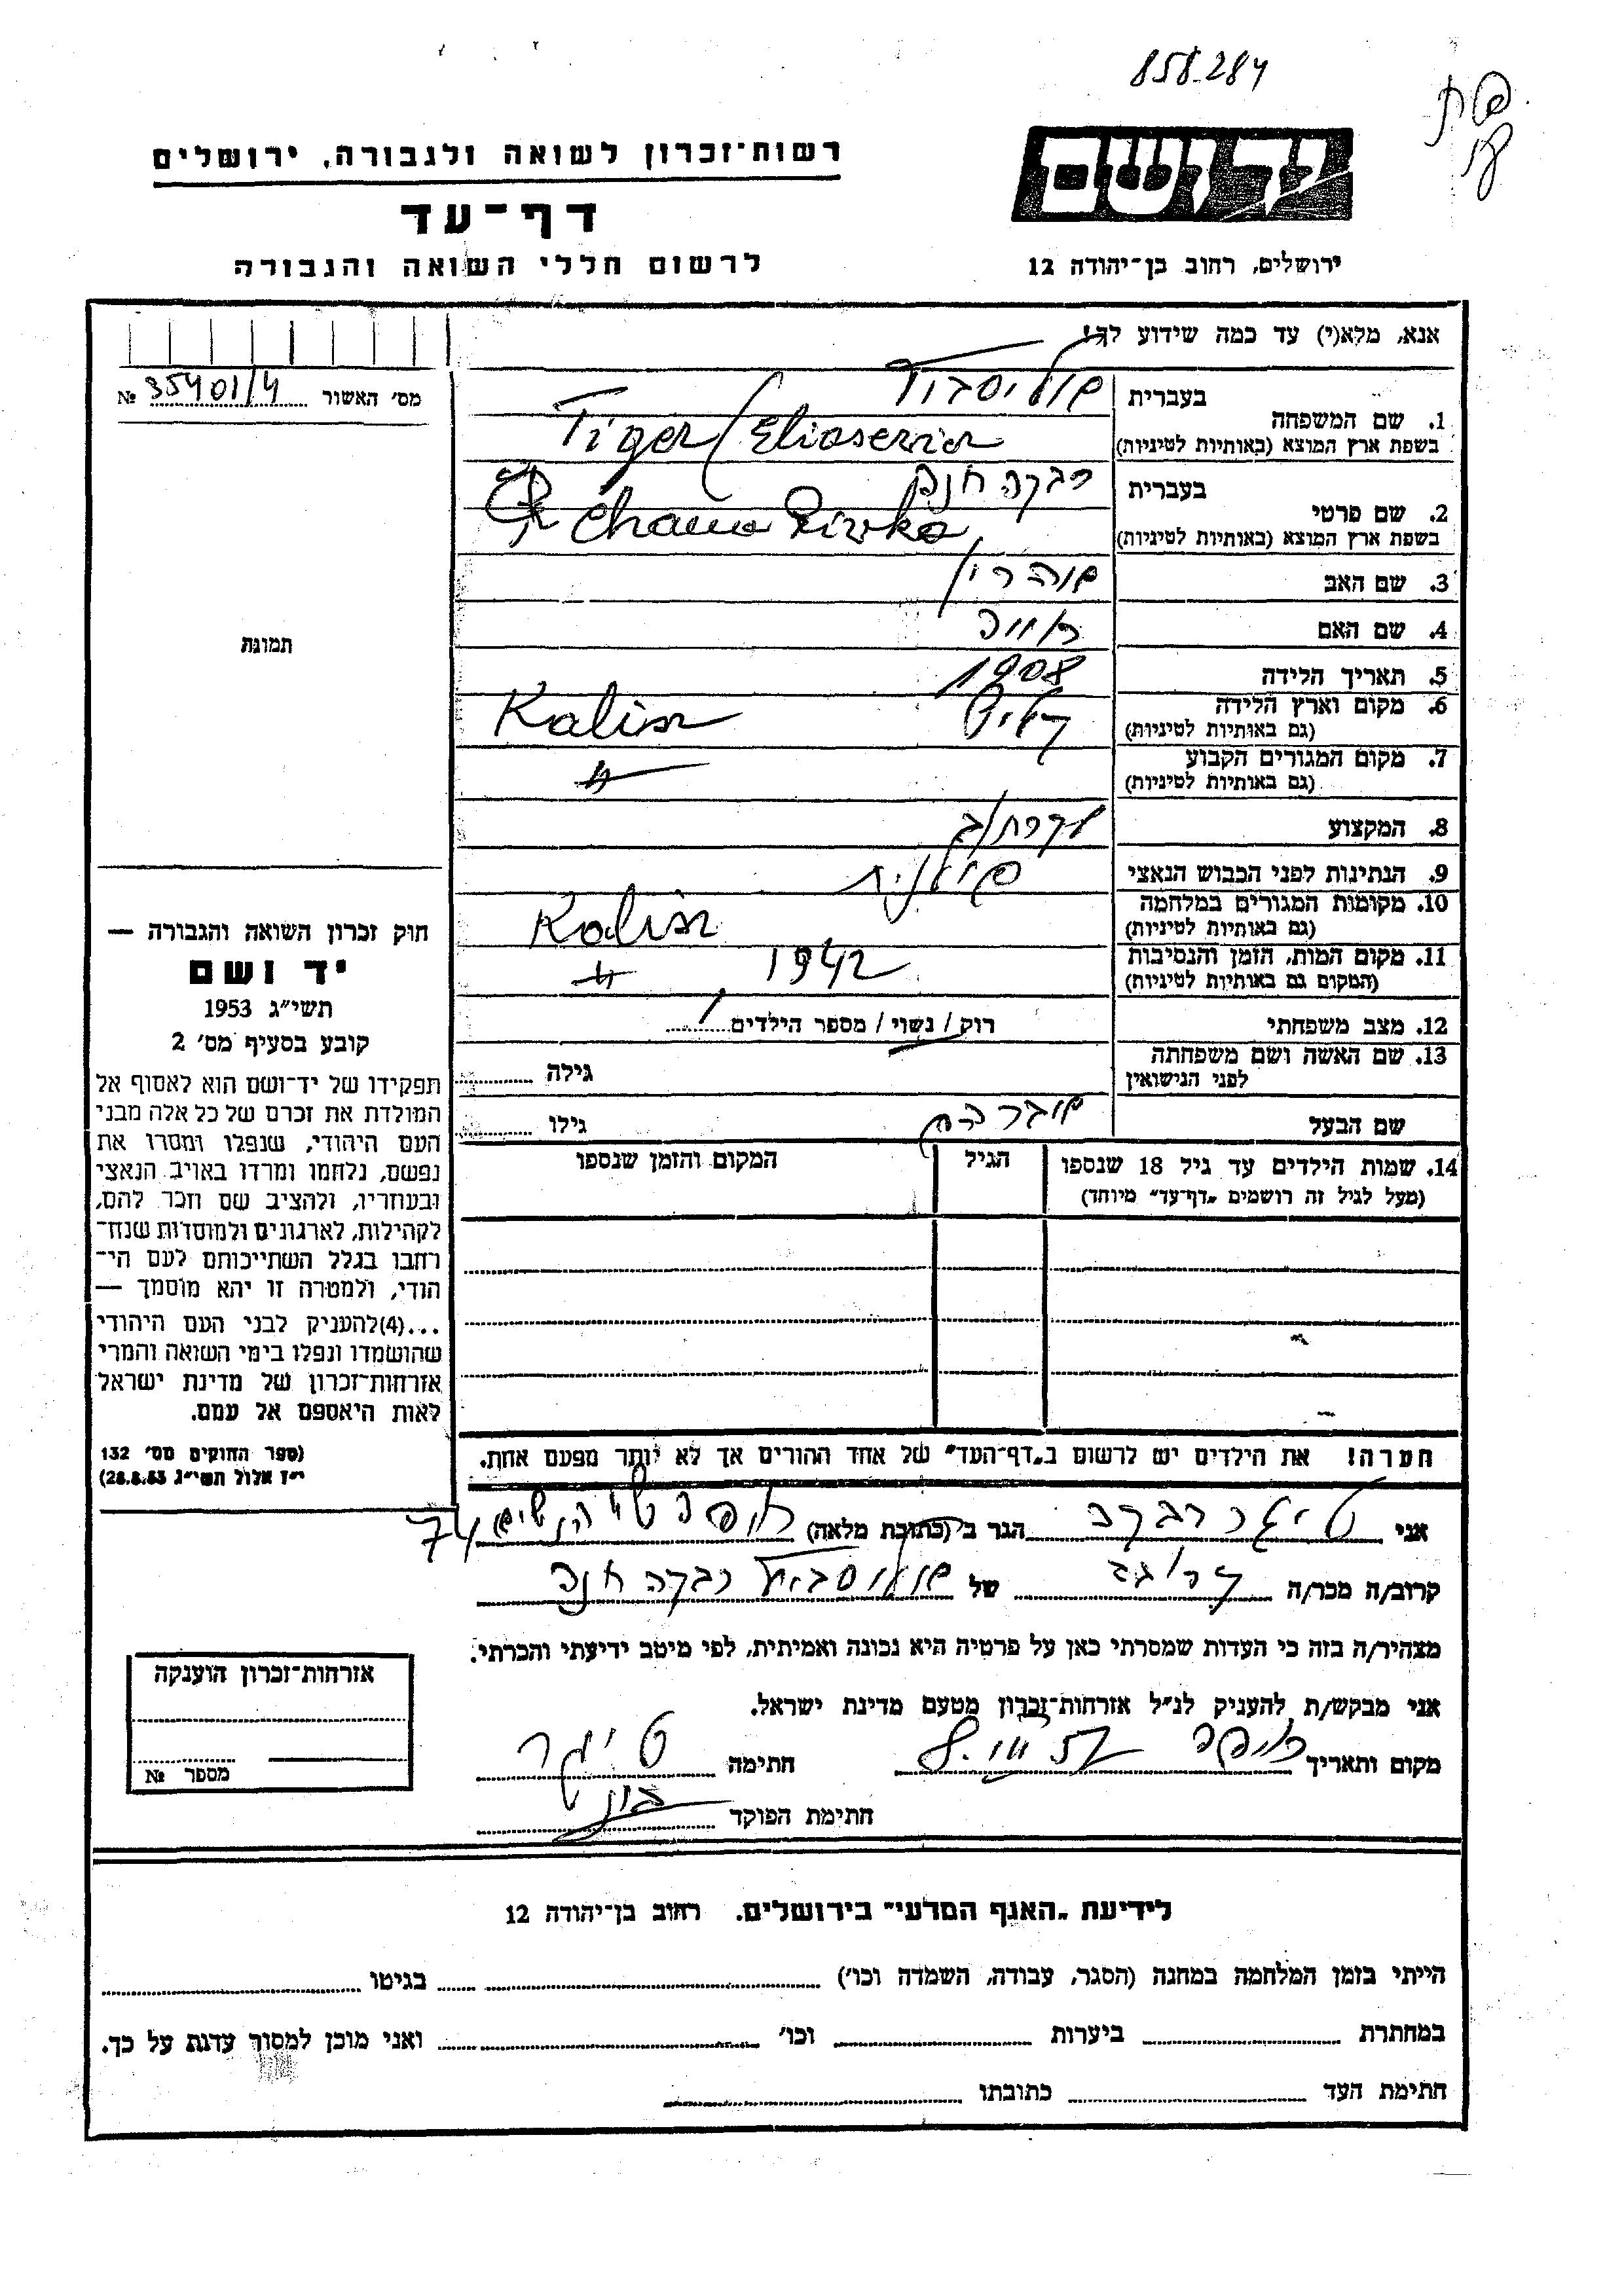 858.284
רשות־זכרון לשואה ולגבורה, ירושלים
יד ושם
דף־עד
לרשום חללי השואה והגבורה
ירושלים, רחוב בן־יהודה 12
אנא, מלא(י) עד כמה שידוע לך!
מס׳ האשור № 35401/4
1. שם המשפחה
בעברית
בשפת ארץ המוצא (באותיות לטיניות) Tiger/
2. שם פרטי
בעברית רבקה חנה
בשפת ארץ המוצא (באותיות לטיניות) Chana Rivka
3. שם האב
4. שם האם
5. תאריך הלידה 1908
6. מקום וארץ הלידה Kalisz
(גם באותיות לטיניות)
7. מקום המגורים הקבוע
(גם באותיות לטיניות)
8. המקצוע
9. הנתינות לפני הכבוש הנאצי פולנית
10. מקומות המגורים במלחמה Kalisz
(גם באותיות לטיניות)
11. מקום המות, הזמן והנסיבות 1942
(המקום גם באותיות לטיניות)
12. מצב משפחתי רוק / נשוי / מספר הילדים 1
13. שם האשה ושם משפחתה גילה
לפני הנישואין
שם הבעל גילו
14. שמות הילדים עד גיל 18 שנספו הגיל המקום והזמן שנספו
(מעל לגיל זה רושמים „דף־עד״ מיוחד)
הערה! את הילדים יש לרשום ב„דף־העד״ של אחד ההורים אך לא יותר מפעם אחת.
תמונת
חוק זכרון השואה והגבורה —
יד ושם
תשי״ג 1953
קובע בסעיף מס׳ 2
תפקידו של יד־ושם הוא לאסוף אל
המולדת את זכרם של כל אלה מבני
העם היהודי, שנפלו ומסרו את
נפשם, נלחמו ומרדו באויב הנאצי
ובעוזריו, ולהציב שם וזכר להם,
לקהילות, לארגונים ולמוסדות שנח־
רחבו בגלל השתייכותם לעם הי־
הודי, ולמטרה זו יהא מוסמך —
...(4)להעניק לבני העם היהודי
שהושמדו ונפלו בימי השואה והמרי
אזרחות־זכרון של מדינת ישראל
לאות היאספם אל עמם.
(ספר החוקים מס׳ 132
י״ז אלול תשי״ג 28.8.53)
אני טיגר רבקה הגר ב׳ (כתובת מלאה) חיפה 74
קרוב/ה מכר/ה של רבקה חנה
מצהיר/ה בזה כי העדות שמסרתי כאן על פרטיה היא נכונה ואמיתית, לפי מיטב ידיעתי והכרתי.
אני מבקש/ת להעניק לנ״ל אזרחות־זכרון מטעם מדינת ישראל.
מקום ותאריך חיפה חתימה טיגר
חתימת הפוקד
אזרחות־זכרון הוענקה
מספר №
לידיעת „האגף המדעי״ בירושלים, רחוב בן־יהודה 12
הייתי בזמן המלחמה במחנה (הסגר, עבודה, השמדה וכו׳) בגיטו
במחתרת ביערות וכו׳ ואני מוכן למסור עדות על כך.
חתימת העד כתובתו